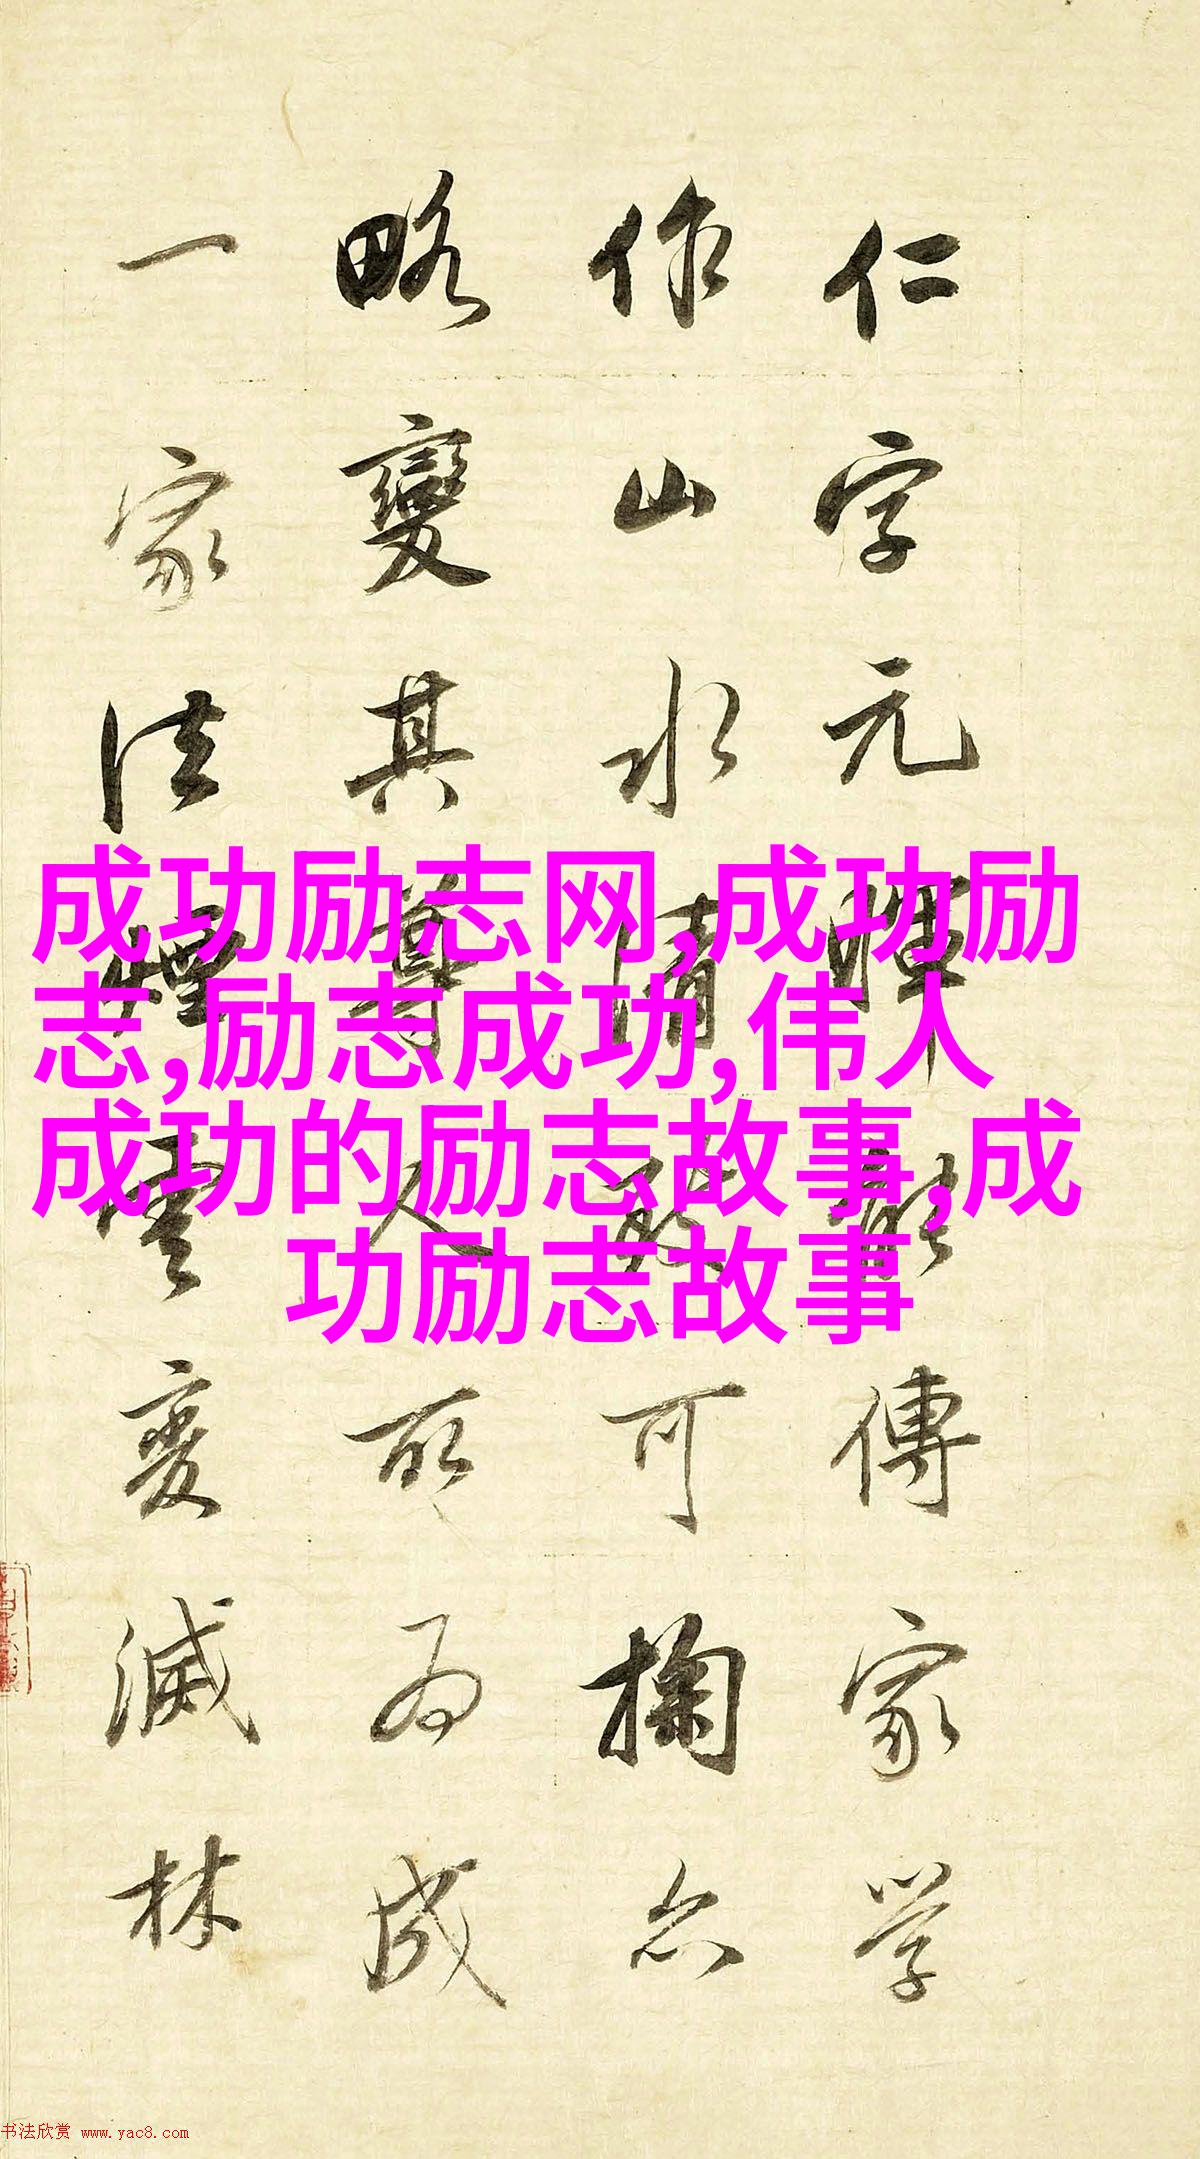 仁字元暉能傳家學
作山水清致可掬亦
略變其尊人所為成
一家法煙雲變滅林
成功励志网,成功励
志,励志成功,伟人
成功的励志故事,成
功励志故事
书法欣赏 www.yac8.com